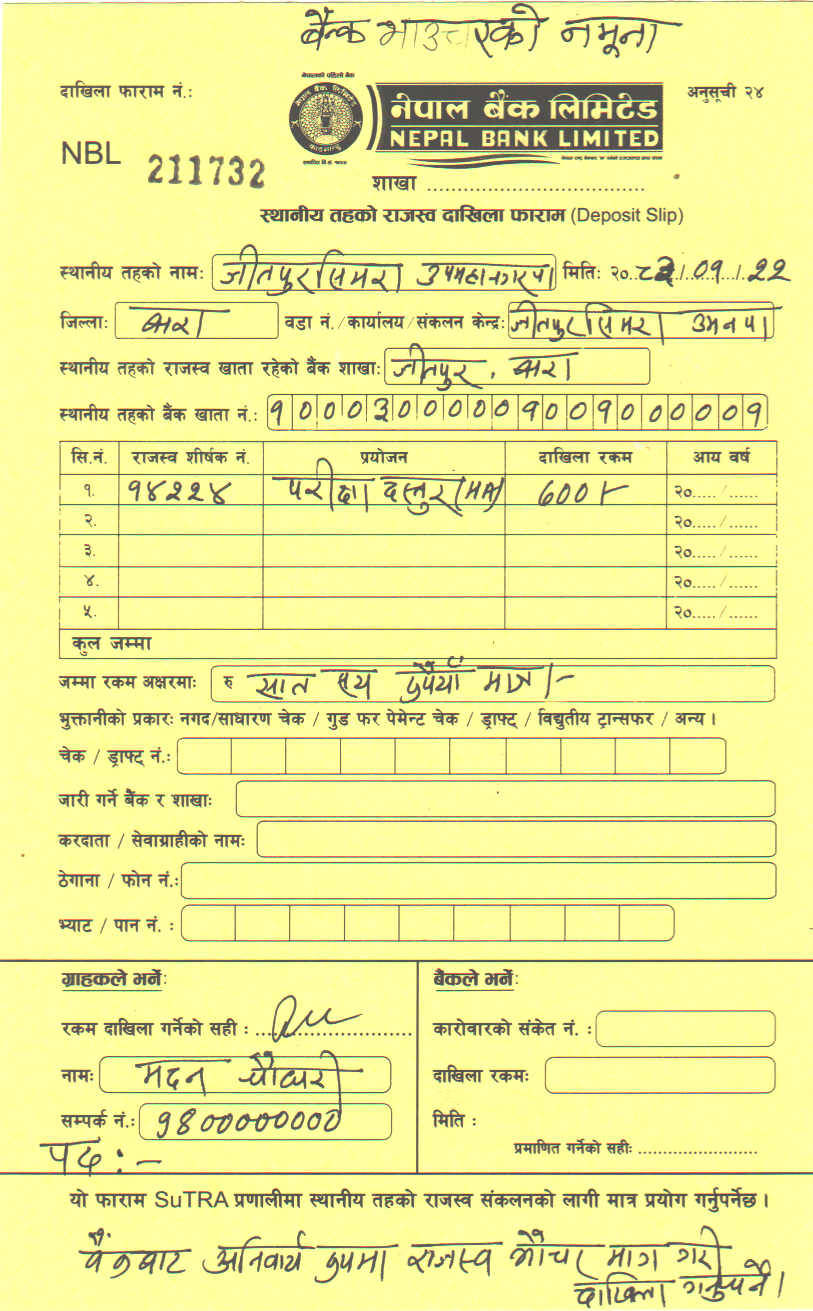 बैंक भाउचरको नमूना
नेपालको पहिलो बैंक
दाखिला फाराम नं.:
नेपाल बैंक लिमिटेड
अनुसूची २४
NBL 211732
NEPAL BANK LIMITED
शाखा ........................................
स्थानीय तहको राजस्व दाखिला फाराम (Deposit Slip)
स्थानीय तहको नाम: जीतपुरसिमरा उपमहानगरपा मितिः २०८२/09/22
जिल्ला: बारा वडा नं./कार्यालय/संकलन केन्द्र: जीतपुरसिमरा उमनपा
स्थानीय तहको राजस्व खाता रहेको बैंक शाखाः जीतपुर, बारा
स्थानीय तहको बैंक खाता नं.: १०००३०००००९००१०००००१
सि.नं. राजस्व शीर्षक नं. प्रयोजन दाखिला रकम आय वर्ष
१. १४२२४ परीक्षा दस्तुर (HA) ६००/- २०...../......
२. २०...../......
३. २०...../......
४. २०...../......
५. २०...../......
कुल जम्मा
जम्मा रकम अक्षरमाः रु सात सय रुपैयाँ मात्र ।-
भुक्तानीको प्रकारः नगद/साधारण चेक / गुड फर पेमेन्ट चेक / ड्राफ्ट् / विद्युतीय ट्रान्सफर / अन्य ।
चेक / ड्राफ्ट् नं.:
जारी गर्ने बैंक र शाखाः
करदाता / सेवाग्राहीको नामः
ठेगाना / फोन नं.:
भ्याट / पान नं. :
ग्राहकले भर्नेः
बैंकले भर्नेः
रकम दाखिला गर्नेको सही : ........................
कारोवारको संकेत नं. :
नामः मदन चौधरी
दाखिला रकमः
सम्पर्क नं.: 9800000000
मिति :
पद :-
प्रमाणित गर्नेको सहीः ........................
यो फाराम SuTRA प्रणालीमा स्थानीय तहको राजस्व संकलनको लागी मात्र प्रयोग गर्नुपर्नेछ ।
बैंकबाट अनिवार्य रुपमा राजस्व भौचर माग गरी
दाखिला गर्नुपर्ने ।